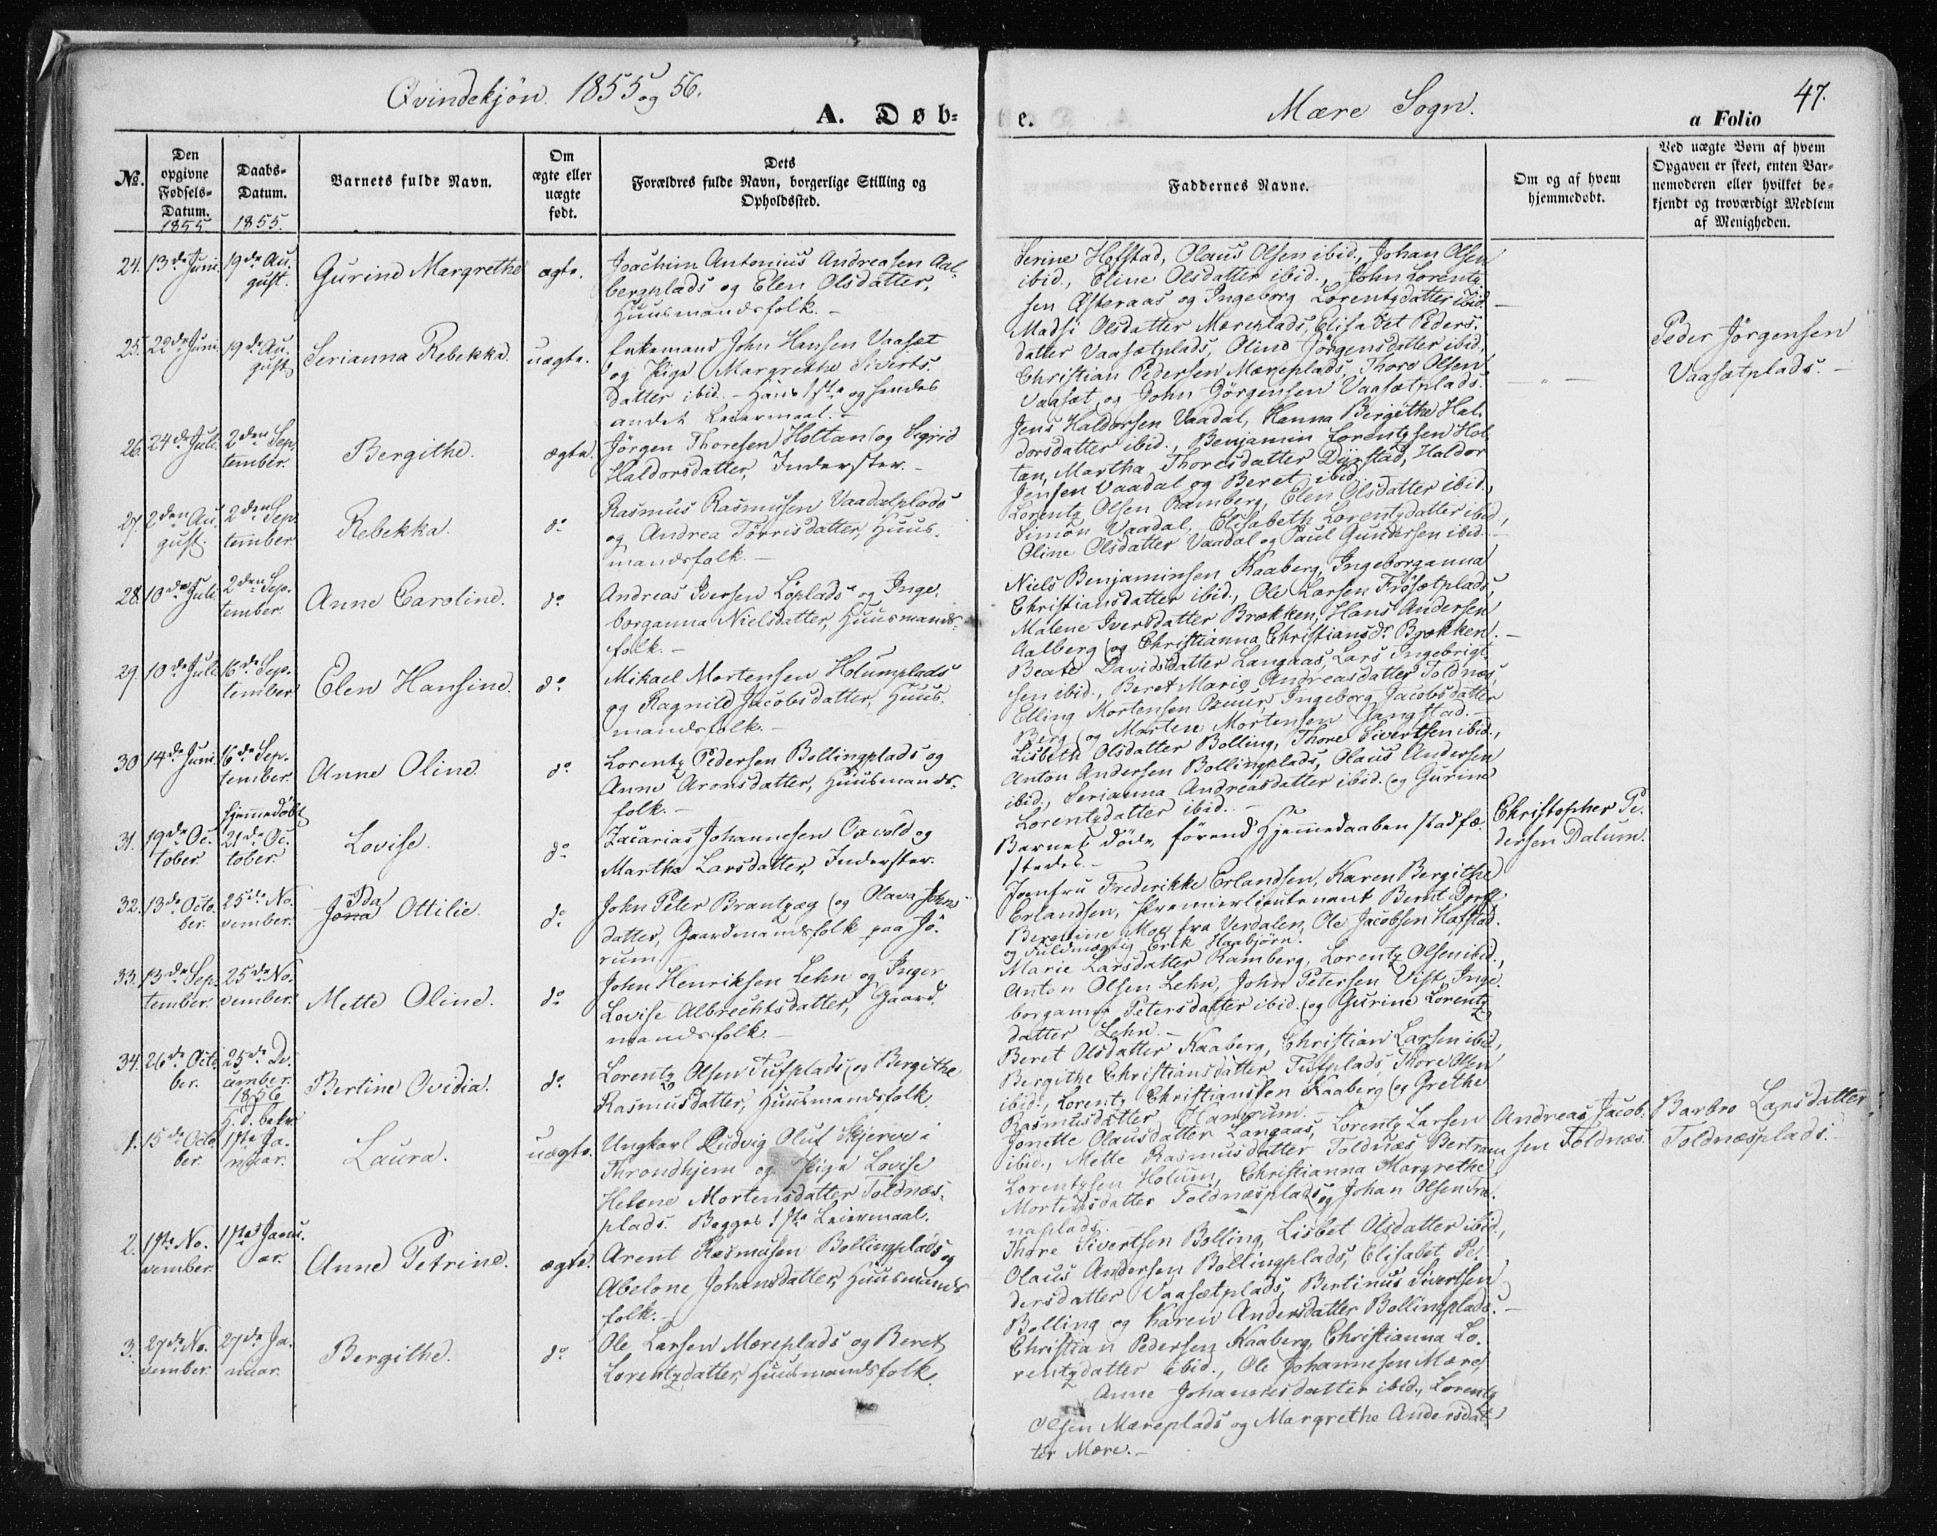 Qvindekjøn. 1855 og 56.
A. Døb-
e.
Mære Sogn.
a Folio 47.
No.
Den
opgivne
Fødsels-
Datum.
1855
Daabs-
Datum.
1855.
Barnets fulde Navn.
Om
ægte eller
uægte
født.
Dets
Forældres fulde Navn, borgerlige Stilling og
Opholdssted.
Faddernes Navne.
Om og af hvem
hjemmedøbt.
Ved uægte Børn af hvem
Opgaven er skeet, enten Bar-
nemoderen eller hvilket be-
kjendt og troværdigt Medlem
af Menigheden.
24. 13de Juni. 19de Au-
gust.
Gurine Margrethe
ægte.
Joachim Antonius Andreasen Aal-
bergplads og Elen Olsdatter,
Huusmandsfolk. -
Serine Hofstad, Olaus Olsen ibid., Johan Olsen
ibid., Eline Olsdatter ibid., John Lorentz-
sen Østeraas og Ingeborg Lorentzdatter ibid.
25. 22de Juni. 19de Au-
gust.
Serianna Rebekka.
uægte.
Enkemand John Hansen Vaaset
og Pige Margrethe Siverts-
datter ibid. - Hans 1ste og hendes
andet Leiermaal. -
Madsi Olsdatter Mæreplads, Elisabet Peders-
datter Vaasætplads, Oline Jørgensdatter ibid.,
Christian Pedersen Mæreplads, Thore Olsen
Vaasæt, og John Jørgensen Vaasætplads.
Peder Jørgensen
Vaasætplads. -
26. 24de Juli. 2den Sep-
tember.
Bergithe.
ægte.
Jørgen Thoresen Holtan og Sigrid
Haldorsdatter, Inderster. -
Jens Haldorsen Vaadal, Hanna Bergithe Hal-
dorsdatter ibid., Benjamin Lorentzsen Hol-
tan, Martha Thoresdatter Dyrstad, Haldor
Jensen Vaadal og Beret ibid.
27. 2den Au-
gust. 2den Sep-
tember.
Rebekka.
do
Rasmus Rasmusen Vaadalplads
og Andrea Tørrisdatter, Huus-
mandsfolk. -
Lorentz Olsen Ramberg, Elen Olsdatter ibid.,
Simon Vaadal, Elisabeth Lorentzdatter ibid,
Oline Olsdatter Vaadal og Paul Gundersen ibid. -
28. 10de Juli. 2den Sep-
tember.
Anne Caroline.
do
Andreas Iversen Løplads og Inge-
borganna Nielsdatter, Huusmands-
folk. -
Niels Benjaminsen Kaaberg, Ingeborganna
Christiansdatter ibid., Ole Larsen Frøsætplads,
Malene Iversdatter Brækken, Hans Andersen
Aalberg og Christianna Christiansdr Brækken. -
29. 10de Juli. 16de Sep-
tember.
Elen Hansine.
do
Mikael Mortensen Holumplads
og Ragnild Jacobsdatter, Huus-
mandsfolk. -
Beate Davidsdatter Langaas, Lars Ingebrigt-
sen ibid., Beret Marie Andreasdatter Toldnæs,
Elling Mortensen Buur, Ingeborg Jacobsdatter
Berg og Morten Mortensen Gangstad. -
30. 14de Juni. 16de Sep-
tember.
Anne Oline.
do
Lorentz Pedersen Bollingplads og
Anne Aronsdatter, Huusmands-
folk. -
Lisbeth Olsdatter Bolling, Thore Sivertsen ibid.,
Anton Andersen Bollingplads, Olaus Andersen
ibid., Serianna Andreasdatter ibid. og Gurine
Lorentzdatter ibid. -
31. 19de Oc-
tober
hjemmedøbt
21de Oc-
tober.
Lovise.
do
Zacarias Johannesen Oxvold og
Martha Larsdatter, Inderster.
Barnet døde, førend Hjemmedaaben stadfæ-
stedes. -
Christopher Pe-
dersen Dalum.
32. 13de Octo-
ber. 25de No-
vember.
Ida
Jona Ottilie.
do
John Peter Brantzæg og Olava John-
datter, Gaardmandsfolk paa Jø-
rum.
Jomfru Frederikke Erlandsen, Karen Bergithe
Erlandsen, Premierlieutenant Bernt Dorff,
Berntine Moe fra Verdalen, Ole Jacobsen Hafstad.
og Fuldmægtig Erik Haabjørn.
33. 13de Sep-
tember. 25de No-
vember.
Mette Oline.
do
John Henriksen Lehn og Inger
Lovise Albrechtsdatter, Gaard-
mandsfolk. -
Marie Larsdatter Ramberg, Lorentz Olsen ibid.,
Anton Olsen Lehn, John Petersen Vist, Inge-
borganna Petersdatter ibid. og Gurine Lorentz-
datter Lehn. -
34. 26de Octo-
ber. 25de De-
cember.
Bertine Ovidia.
do
Lorentz Olsen Tufplads og Bergithe
Rasmusdatter, Huusmandsfolk.
Beret Olsdatter Kaaberg, Christian Larsen ibid,
Bergithe Christiansdatter Tufplads, Thore Olsen
ibid., Lorentz Christiansen Kaaberg og Grethe
Rasmusdatter Hamrum.
1856
1. 15de Octo-
ber.
H. d. bekr.
1ste Ja-
nuar.
Laura.
uægte.
Ungkarl Ludvig Oluf Skjerve i
Throndhjem og Pige Lovise
Helene Mortensdatter Toldnæs-
plads. Begges 1ste Leiermaal.
Jonette Olausdatter Langaas, Lorentz Larsen
ibid., Mette Rasmusdatter Toldnæs, Bertram
Lorentzsen Holum, Christianna Margrethe
Mortensdatter Toldnæsplads og Johan Olsen Tra-
naplads.
Andreas Jacob-
sen Toldnæs.
Barbro Larsdatter
Toldnæsplads. -
2. 1ste No-
vember. 1ste Janu-
ar.
Anne Petrine.
ægte.
Arent Rasmusen Bollingplads og
Abelone Johansdatter, Huusmands-
folk. -
Thore Sivertsen Bolling, Lisbet Olsdatter ibid.,
Olaus Andersen Bollingplads, Elisabet Pe-
dersdatter Vaasætplads, Bertinus Sivertsen
Bolling og Karen Andersdatter Bollingplads. -
3. 27de No-
vember. 27de Ja-
nuar.
Bergithe.
do
Ole Larsen Mæreplads og Beret
Lorentzdatter, Huusmandsfolk.
Christian Pedersen Kaaberg, Christianna Lo-
rentzdatter ibid., Ole Johannesen Mære,
Anne Johannesdatter ibid., Lorentz
Olsen Mæreplads og Margrethe Andersdat-
ter Mære. -